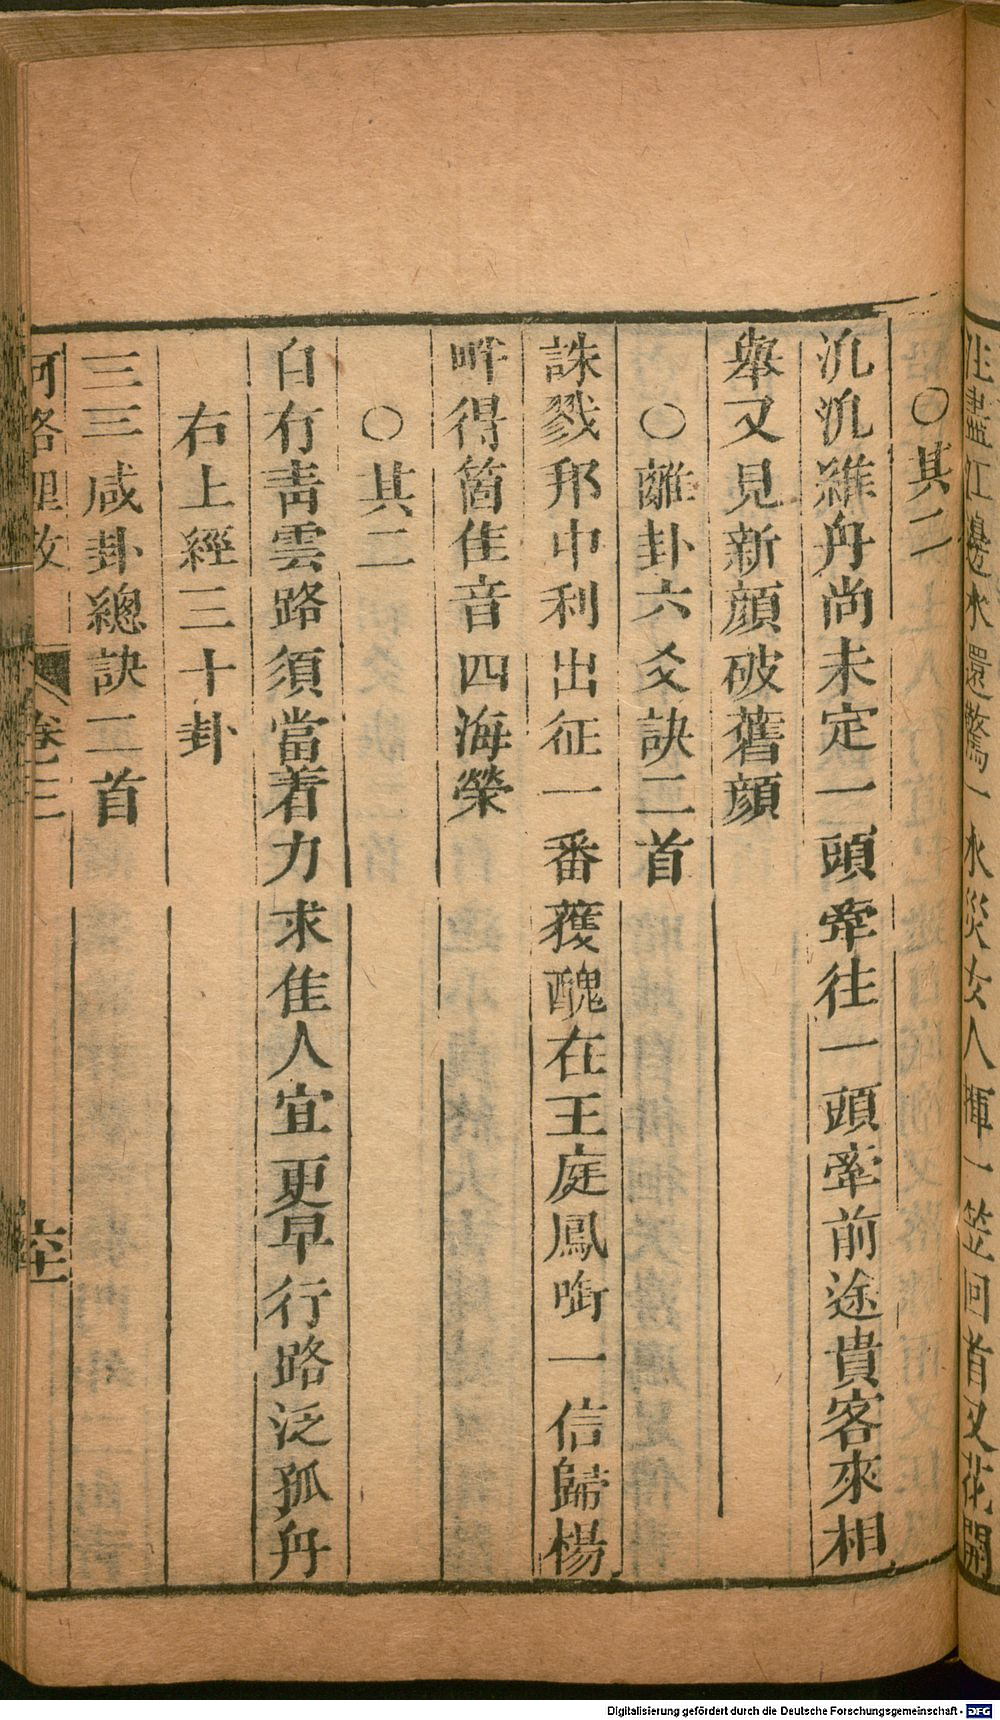 往盡江邊水還驚一水災女人揮一笠回首又花開
○其二
汎汎維舟尚未定一頭牽往一頭牽前途貴客來相
舉又見新顏破舊顏
○離卦六爻訣二首
誅戮邦中利出征一番獲醜在王庭鳳啣一信歸楊
畔得箇佳音四海榮
○其二
自有青雲路須當着力求佳人宜更早行路泛孤舟
右上經三十卦
三三咸卦總訣二首
河洛理数 卷三
Digitalisierung gefördert durch die Deutsche Forschungsgemeinschaft - DFG